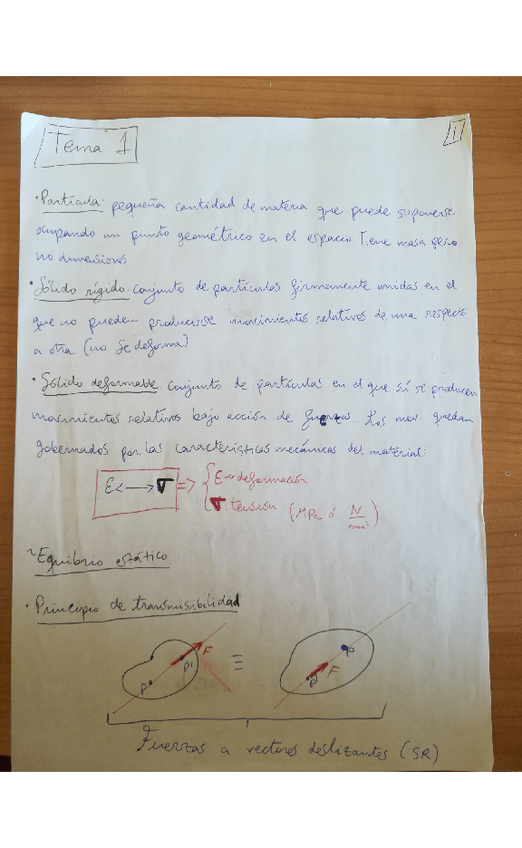 Tema 1
1
· Partícula: pequeña cantidad de materia que puede suponerse
ocupando un punto geométrico en el espacio Tiene masa pero
no dimensiones
· Sólido rígido: conjunto de partículas firmemente unidas en el
que no pueden producirse movimientos relativos de una respecto
a otra (no se deforma)
· Sólido deformable conjunto de partículas en el que sí se producen
movimientos relativos bajo acción de fuerzas. Los mov. quedan
gobernados por las características mecánicas del material:
ε <—> σ => { ε → deformación
σ: tensión (MPa ó N/mm²)
~ Equilibrio estático
· Principio de transmisibilidad
P P' F ≡ P F P
Fuerzas a vectores deslizantes (SR)